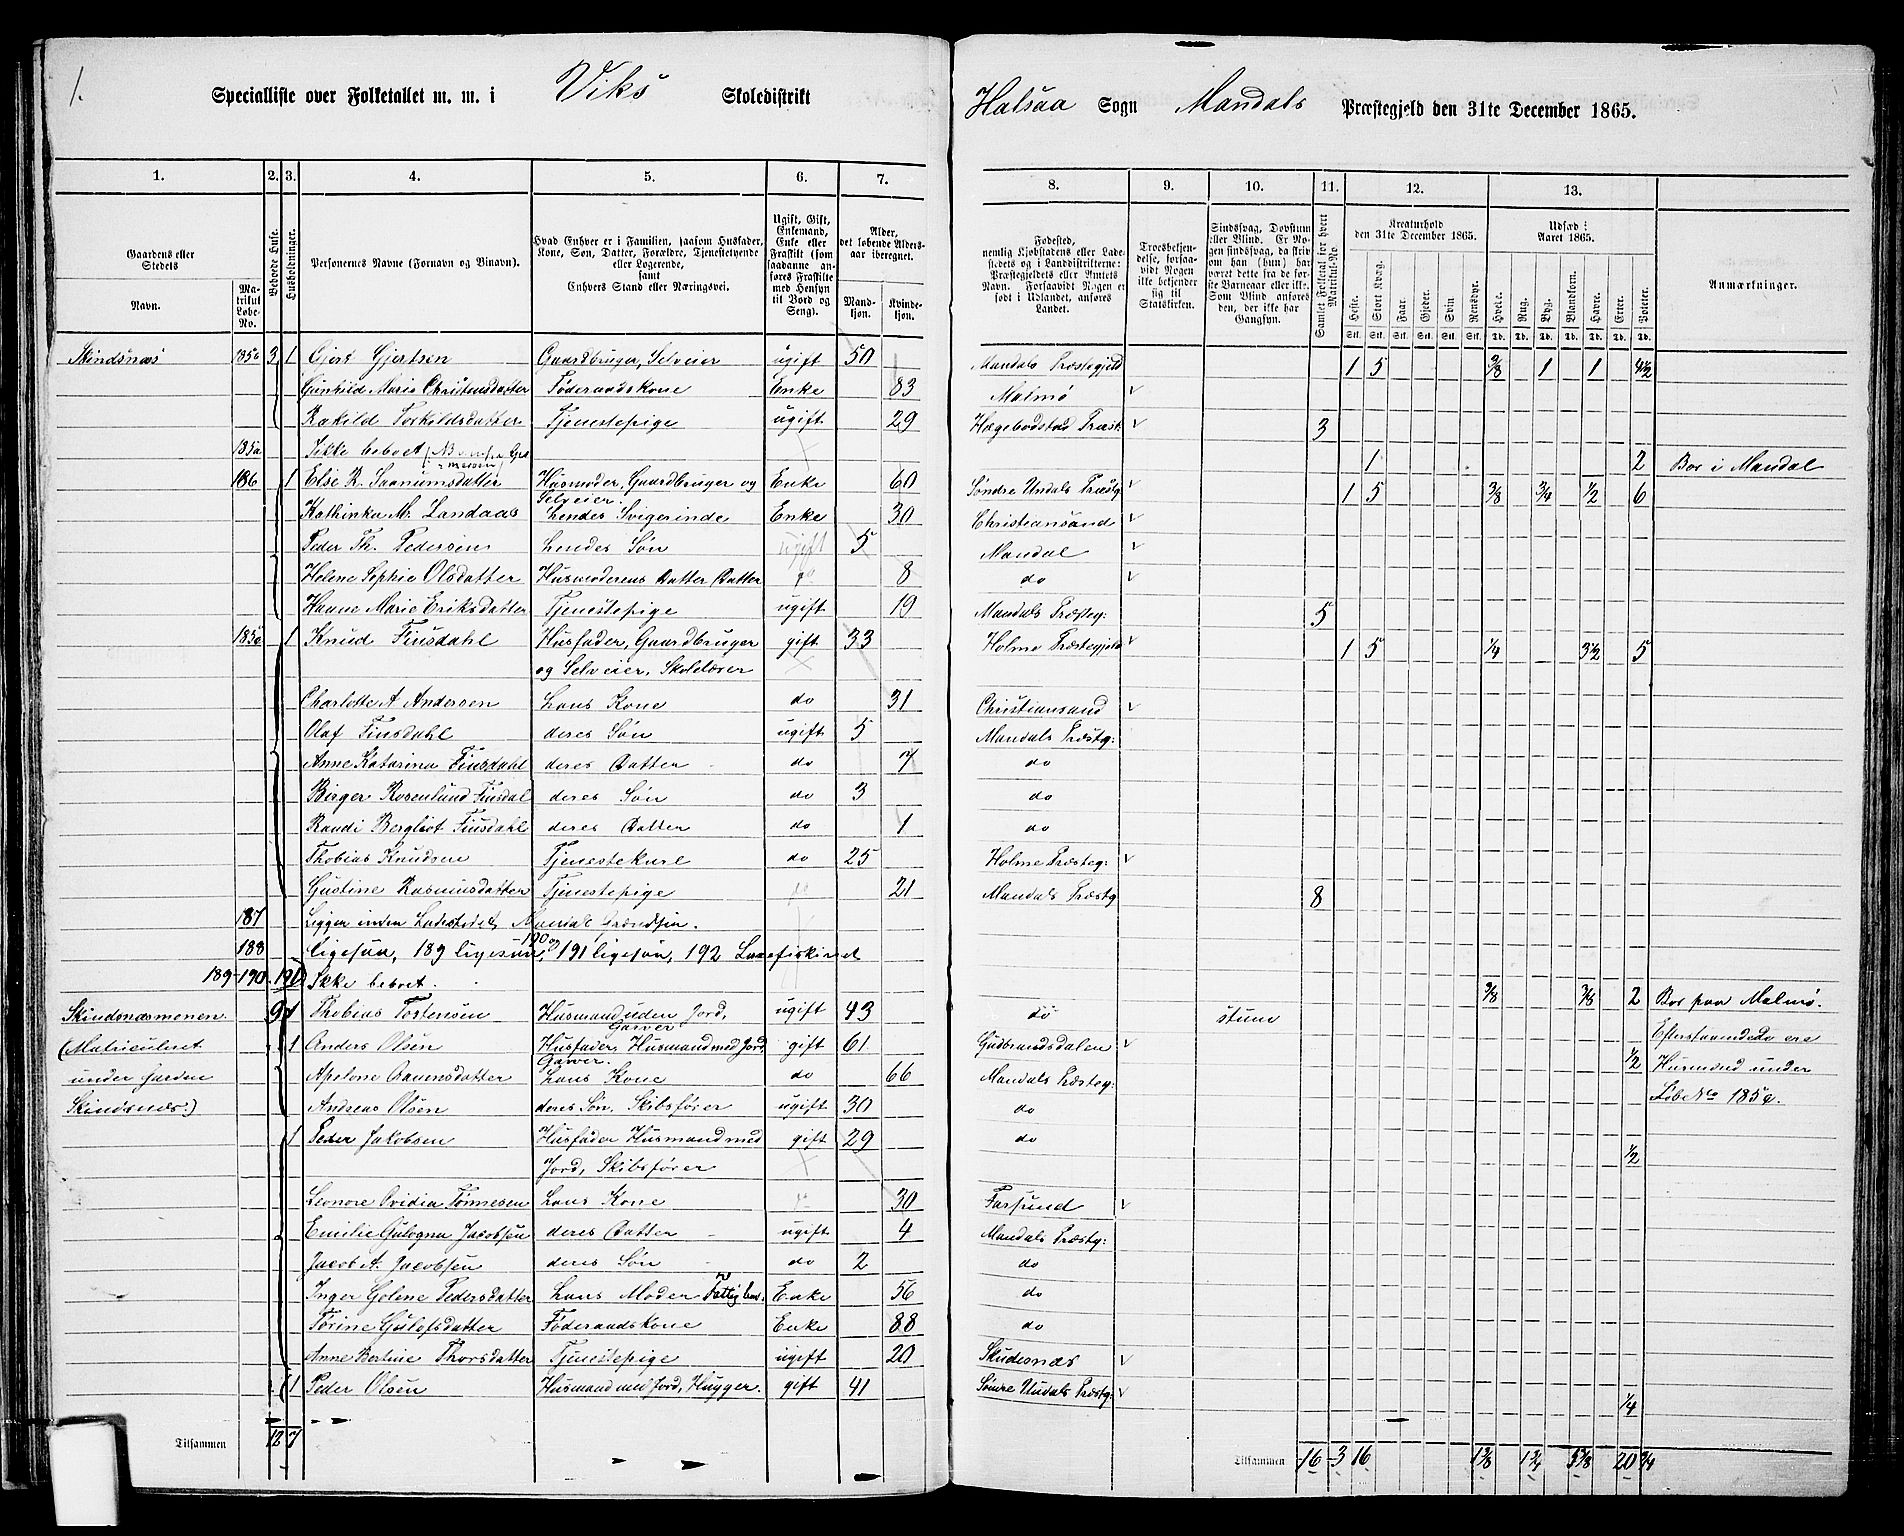 1.
Specialliste over Folketallet m. m. i Viks Skoledistrikt
Halsaa Sogn Mandals Præstegjeld den 31te December 1865.
1. 2. 3. 4. 5. 6. 7. 8. 9. 10. 11. 12. 13.
Gaardens eller Stedets
Navn.
Matrikul Løbe-No.
Beboede Huse.
Husholdninger.
Personernes Navne (Fornavn og Binavn).
Hvad Enhver er i Familien, saasom Husfader, Kone, Søn, Datter, Forældre, Tjenestetyende eller Logerende, samt Enhvers Stand eller Næringsvei.
Ugift, Gift, Enkemand, Enke eller Fraskilt (som saadanne anføres Fraskilte med Hensyn til Bord og Seng).
Alder, det løbende Alders-aar iberegnet.
Mandkjøn. Kvindekjøn.
Fødested, nemlig Kjøbstadens eller Ladestedets og i Landdistrikterne: Præstegjeldets eller Amtets Navn. Forsaavidt Nogen er født i Udlandet, anføres Landet.
Troesbekjendelse, forsaavidt Nogen ikke bekjender sig til Statskirken.
Sindssvag, Døvstum eller Blind. Er Nogen sindssvag, da skrives om han (hun) har været dette fra de første Barneaar eller ikke. Som Blind anføres den, der ikke har Gangsyn.
Samlet Folketal for hvert Matrikul-No
Kreaturhold den 31te December 1865.
Heste. Stort Kvæg. Faar. Gjeder. Svin. Rensdyr.
Udsæd i Aaret 1865.
Hvede. Rug. Byg. Blandkorn. Havre. Erter. Poteter.
Anmærkninger.
Skindsnæs 185a 3 1 Gjert Gjertsen Gaardbruger, Selveier ugift 50 Mandals Præstegjeld 1 5 3/8 1 1 4 1/2
Gunhild Marie Christensdatter Føderaadskone Enke 83 Malmø
Rakild Torkildsdatter Tjenestepige ugift 29 Hægebostad Præst. 3
185a Ikke beboet 1 2 Bor i Mandal
186 1 Else R. Saanumsdatter Husmoder, Gaardbruger og Selveier. Enke 60 Søndre Undals Præstg 1 5 3/8 3/4 1/2 6
Kathinka M. Landaas hendes Svigerinde Enke 30 Christiansand
Peder Th. Pedersen hendes Søn ugift 5 Mandal
Helene Sophie Olsdatter Husmoderens Datter Datter do 8 do
Hanne Marie Eriksdatter Tjenestepige ugift 19 Mandals Præsteg: 5
185c 1 Knud Finsdahl Husfader, Gaardbruger gift 33 Holme Præstegjeld 1 5 1/4 3 1/2 5
og Selveier, Skolelærer
Charlotte A Andersen hans Kone do 31 Christiansand
Olaf Finsdahl deres Søn ugift 5 Mandals Præstg:
Anne Katarina Finsdahl deres Datter do 7 do
Birger Rosenlund Finsdal deres Søn do 3 do
Randi Bergliot Finsdahl deres Datter do 1 do
Thobias Knudsen Tjenestekarl do 25 Holme Præsteg:
Gustine Rasmusdatter Tjenestepige do 21 Mandals Præstg 8
187 Ligger inden Ladestedet Mandals Grændser.
188 ligesaa, 189 ligesaa, 190 og 191 ligesaa, 192 Laxefiskeriet
189-190 191 Ikke beboet. 3/8 3/8 2 Bor paa Malmø.
Skindsnæsmonen 9 1 Thobias Tostensen Husmand uden Jord, Garver ugift 43 do stum Efterstaaende ere
(Matriculeret 1 Anders Olsen Husfader Husmand med Jord, Garver. gift 61 Gudbrandsdalen 1/2 Husmænd under
under Gaarden Apelone Davensdatter hans Kone do 66 Mandals Præsteg:
Skindsnæs.) Andreas Olsen deres Søn, Skibsfører ugift 30 do Løbe No 185c.
1 Peder Jakobsen Husfader Husmand med gift 29 do 1/2
Jord, Skibsfører
Leonore Ovidia Tønnesen hans Kone do 30 Farsund
Emilie Gulogna Jacobsen deres Datter ugift 4 Mandals Præstg:
Jacob A. Jacobsen deres Søn do 2 do
Inger Golene Pedersdatter hans Moder Fattiglem. Enke 56 do
Torine Gulofsdatter Føderaadskone Enke 88 do
Anne Bertine Thorsdatter Tjenestepige ugift 20 Skudesnæs
1 Peder Olsen Husmand med Jord, Hugger. gift 41 Søndre Undals Præstg: 1/4
Tilsammen 12 7
Tilsammen 16 3 16 1 3/8 1 3/4 5 3/8 20 3/4